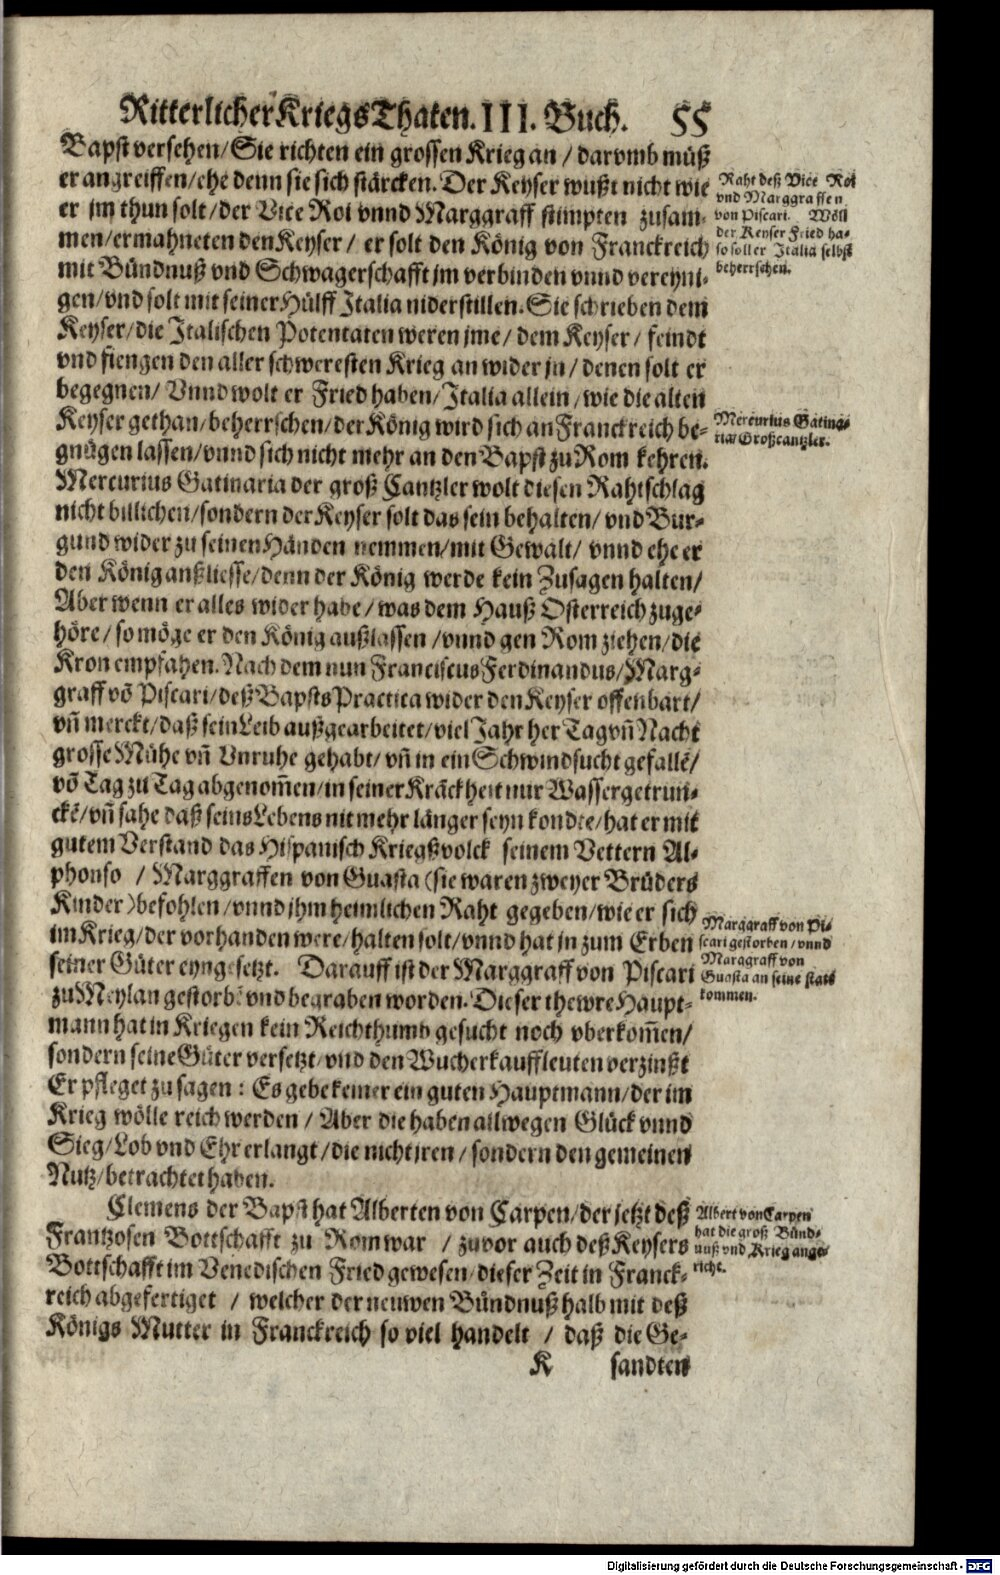 Ritterlicher Kriegs Thaten. III. Buch. 55
Bapst versehen/ Sie richten ein grossen Krieg an / darvmb müß
er angreiffen/ ehe denn sie sich stärcken. Der Keyser wußt nicht wie
er jm thun solt/ der Vice Roi vnnd Marggraff stimpten zusam-
men/ ermahneten den Keyser/ er solt den König von Franckreich
mit Bündnuß vnd Schwagerschafft jm verbinden vnnd vereyni-
gen/ vnd solt mit seiner Hülff Italia niderstillen. Sie schrieben dem
Keyser/ die Italischen Potentaten weren jme/ dem Keyser/ feindt
vnd fiengen den aller schweresten Krieg an wider jn/ denen solt er
begegnen/ Vnnd wolt er Fried haben/ Italia allein/ wie die alten
Keyser gethan/ beherrschen/ der König wird sich an Franckreich be-
gnügen lassen/ vnnd sich nicht mehr an den Bapst zu Rom kehren.
Mercurius Gatinaria der groß Cantzler wolt diesen Rahtschlag
nicht billichen/ sondern der Keyser solt das sein behalten/ vnd Bur-
gund wider zu seinen Händen nemmen/ mit Gewalt/ vnnd ehe er
den König außliesse/ denn der König werde kein Zusagen halten/
Aber wenn er alles wider habe/ was dem Hauß Osterreich zuge-
höre/ so möge er den König außlassen/ vnnd gen Rom ziehen/ die
Kron empfahen. Nach dem nun Franciscus Ferdinandus/ Marg-
graff võ Piscari/ deß Bapsts Practica wider den Keyser offenbart/
vñ merckt/ daß sein Leib außgearbeitet/ viel Jahr her Tag vñ Nacht
grosse Mühe vñ Vnruhe gehabt/ vñ in ein Schwindsucht gefallẽ/
võ Tag zu Tag abgenom̃en/ in seiner Krãckheit nur Wasser getrun-
ckẽ/ vñ sahe daß seins Lebens nit mehr länger seyn kondte/ hat er mit
gutem Verstand das Hispanisch Kriegßvolck seinem Vettern Al-
phonso / Marggraffen von Guasta (sie waren zweyer Brüders
Kinder) befohlen/ vnnd jhm heimlichen Raht gegeben/ wie er sich
im Krieg/ der vorhanden were/ halten solt/ vnnd hat jn zum Erben
seiner Güter eyngesetzt. Darauff ist der Marggraff von Piscari
zu Meylan gestorbẽ vnd begraben worden. Dieser thewre Haupt-
mann hat in Kriegen kein Reichthumb gesucht noch vberkom̃en/
sondern seine Güter versetzt/ vnd den Wucherkauffleuten verzinßt
Er pfleget zu sagen: Es gebe keiner ein guten Hauptmann/ der im
Krieg wölle reich werden / Aber die haben allwegen Glück vnnd
Sieg/ Lob vnd Ehr erlangt/ die nicht jren/ sondern den gemeinen
Nutz/ betrachtet haben.
Clemens der Bapst hat Alberten von Carpen/ der jetzt deß
Frantzosen Bottschafft zu Rom war / zuvor auch deß Keysers
Bottschafft im Venedischen Fried gewesen/ dieser Zeit in Franck-
reich abgefertiget / welcher der neuwen Bündnuß halb mit deß
Königs Mutter in Franckreich so viel handelt / daß die Ge-
K sandten
Raht deß Vice Roi
vnd Marggraffen
von Piscari. Wöll
der Keyser Fried ha-
so soll er Italia selbst
beherrschen.
Mercurius Gatina-
ria/ Großcantzler.
Marggraff von Pi-
scari gestorben/ vnnd
Marggraff von
Guasta an seine statt
kommen.
Albert von Carpen
hat die groß Bünd-
nuß vnd Krieg ange-
richt.
Digitalisierung gefördert durch die Deutsche Forschungsgemeinschaft - DFG